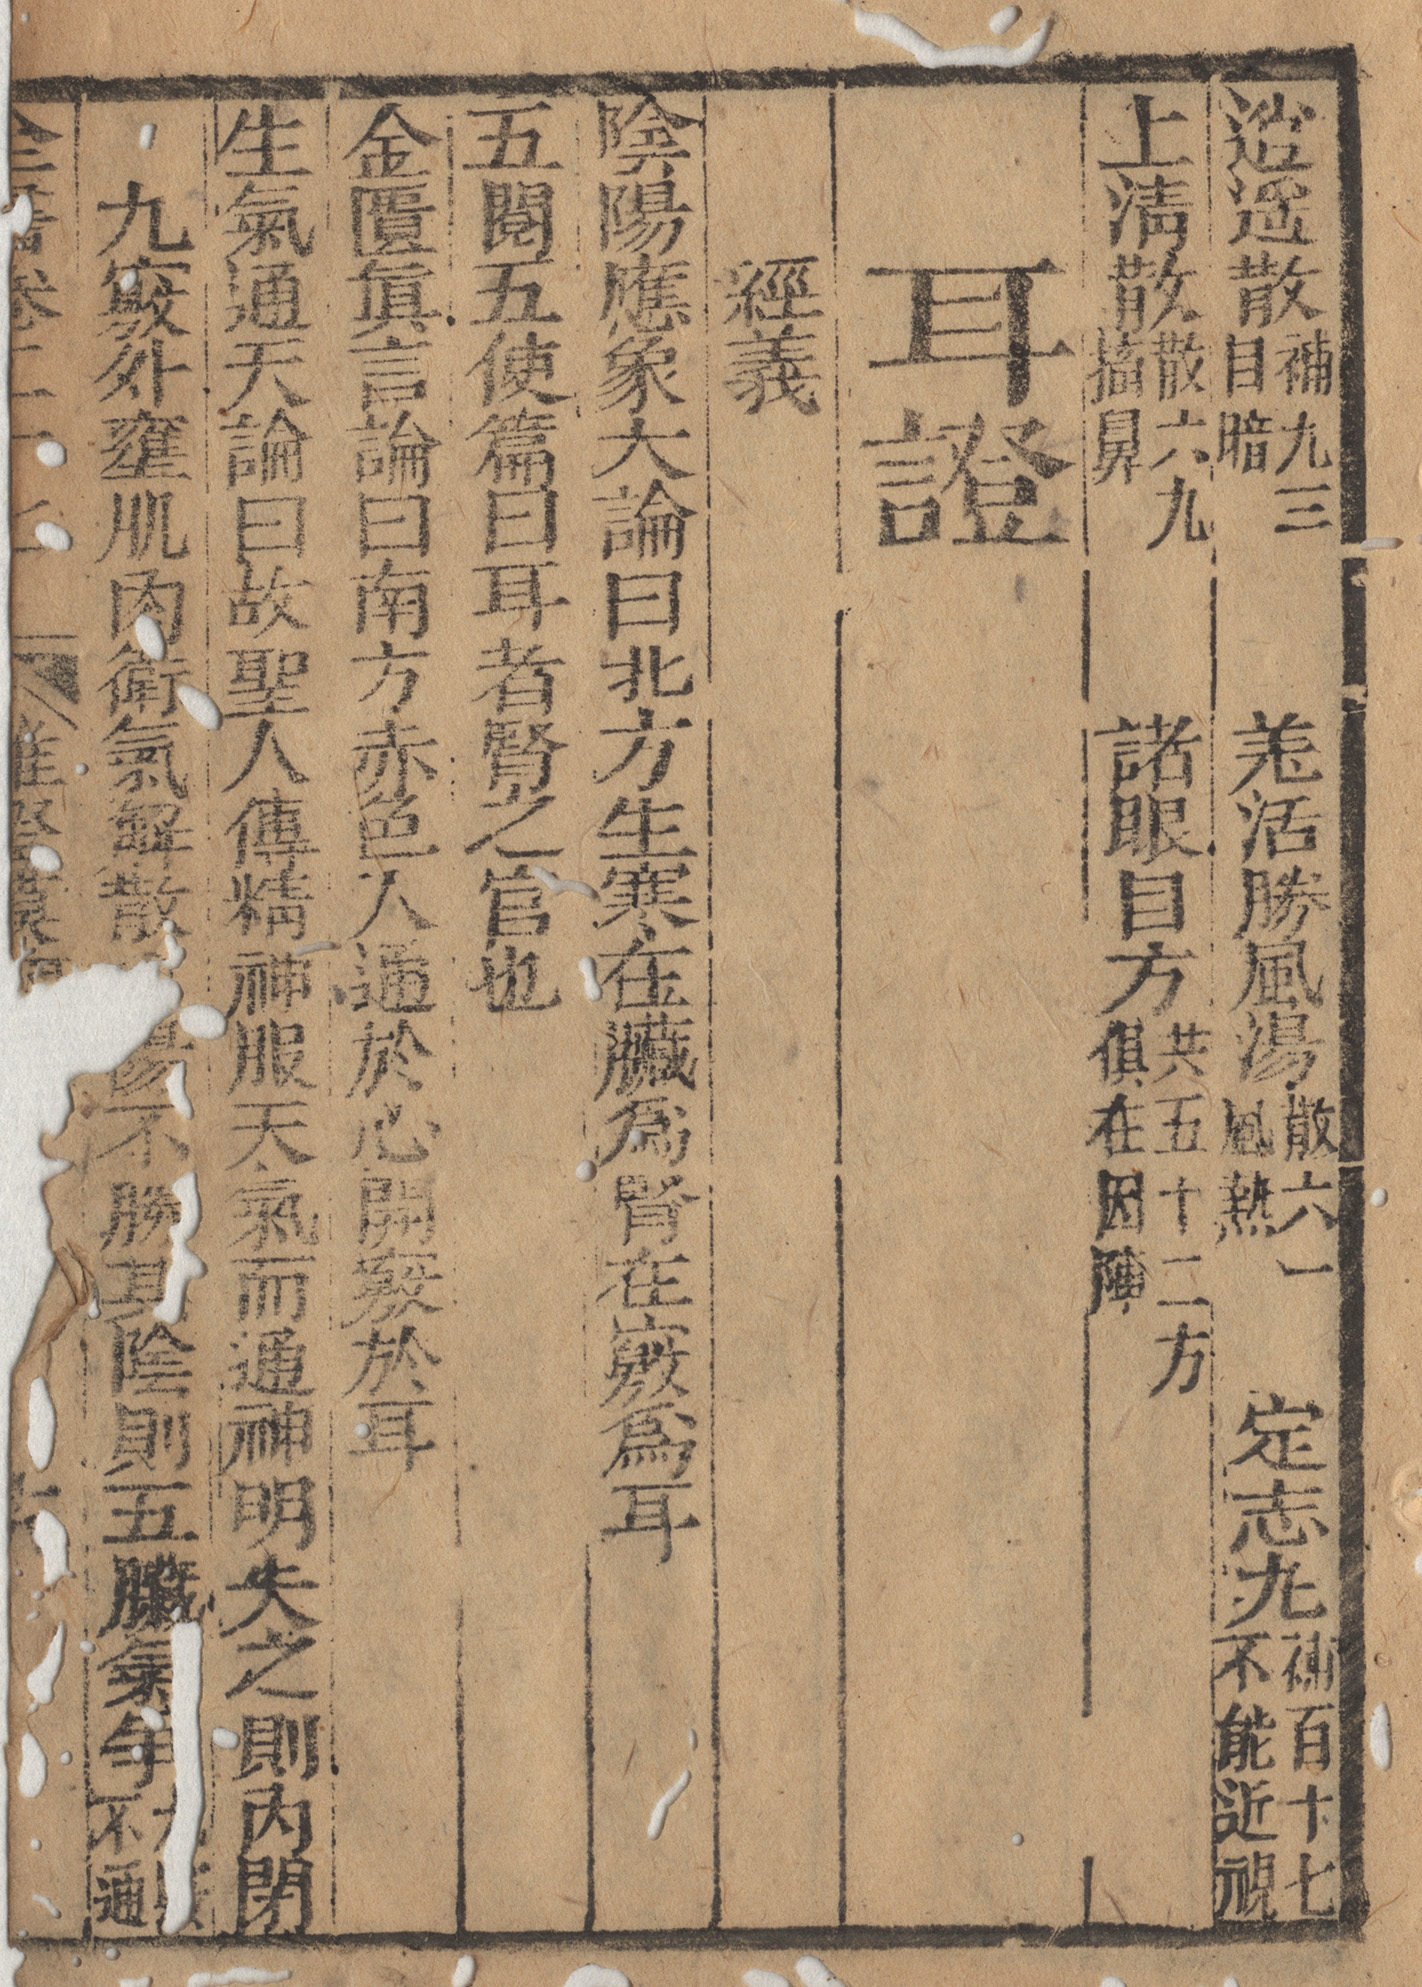 逍遥散補九三目暗 羗活勝風湯散六一風熱 定志丸補百十七不能近視
上清散散六九搐鼻 諸眼目方共五十二方俱在因陣
耳證
經義
陰陽應象大論曰北方生寒在臟爲腎在竅爲耳
五閱五使篇曰耳者腎之官也
金匱眞言論曰南方赤色入通於心開竅於耳
生氣通天論曰故聖人傳精神服天氣而通神明失之則內閉
九竅外壅肌肉衛氣解散 陽不勝其陰則五臟氣爭九竅不通
全書卷二十七